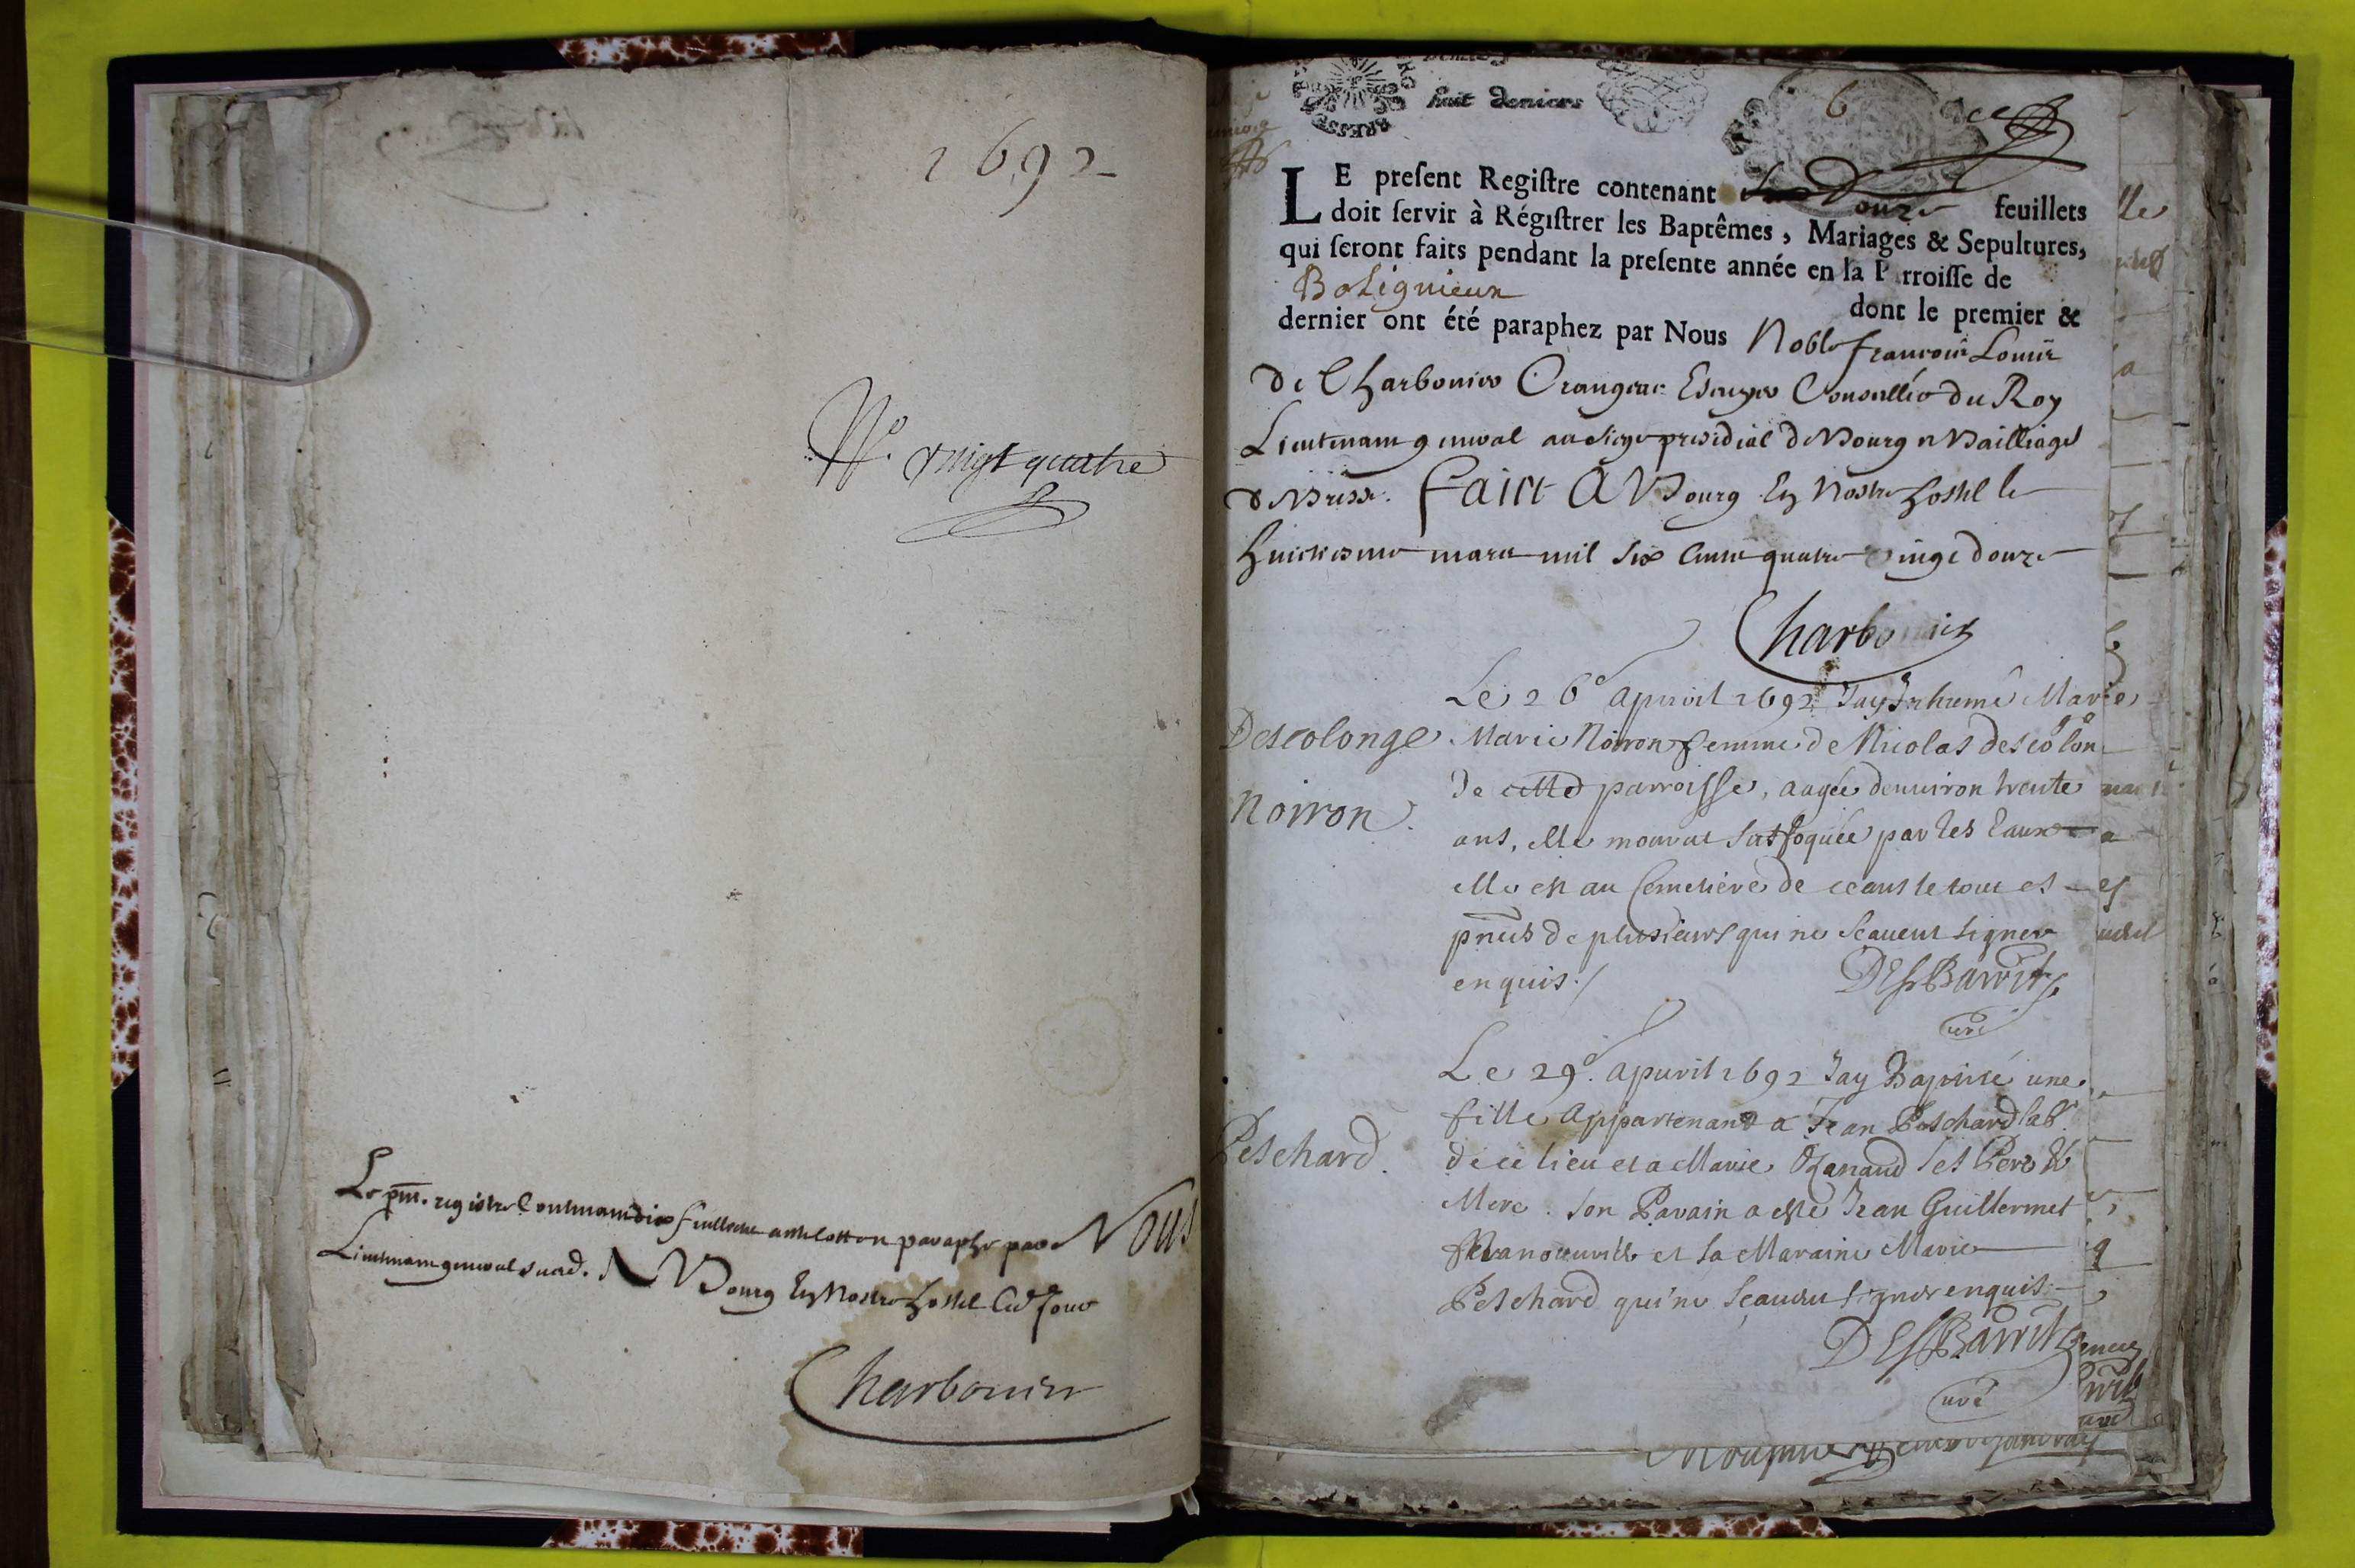 1692
N.º vingt quatre
Le pnt. registre Contenant dix feuillets a esté cotté et paraphé par Nous
Lieutenant general susd. A Bourg En Nostre hostel led. Jour
Charbonier
BRESSE
huit deniers
6
LE preſent Regiſtre contenant Douze feuillets
doit ſervir à Régiſtrer les Baptêmes, Mariages & Sepultures,
qui ſeront faits pendant la preſente année en la Parroiſſe de
Bolignieux dont le premier &
dernier ont été paraphez par Nous Noble francois Louis
De Charbonier Crangeac Escuyer Conseiller du Roy
Lieutenant general au siege presidial de Bourg et Bailliage
de Bresse. Faict A Bourg En Nostre hostel le
huictiesme mars mil six cents quatre vingt douze
Charbonier
Le 26e apuril 1692 Jay Inhumé Marie
Descolonge Marie Noiron femme de Nicolas descolon
de cette parroisse, aagée denuiron trente
Noiron. ans, elle mourut suffoquée par les eaux
elle est au Cemetiere de ceans le tout es
pnces de plusieurs qui ne scauent signer
enquis./ DesBarrits
curé
Le 29e. apuril 1692 Jay Baptisé une
fille appartenant a Jean Peschard lab.
Peschard. de ce lieu et a Marie Ozanand ses Pere &
Mere. son Parain a esté Jean Guillermet
et sa Maraine Marie
Peschard qui ne scauent signer enquis
DesBarrits
curé